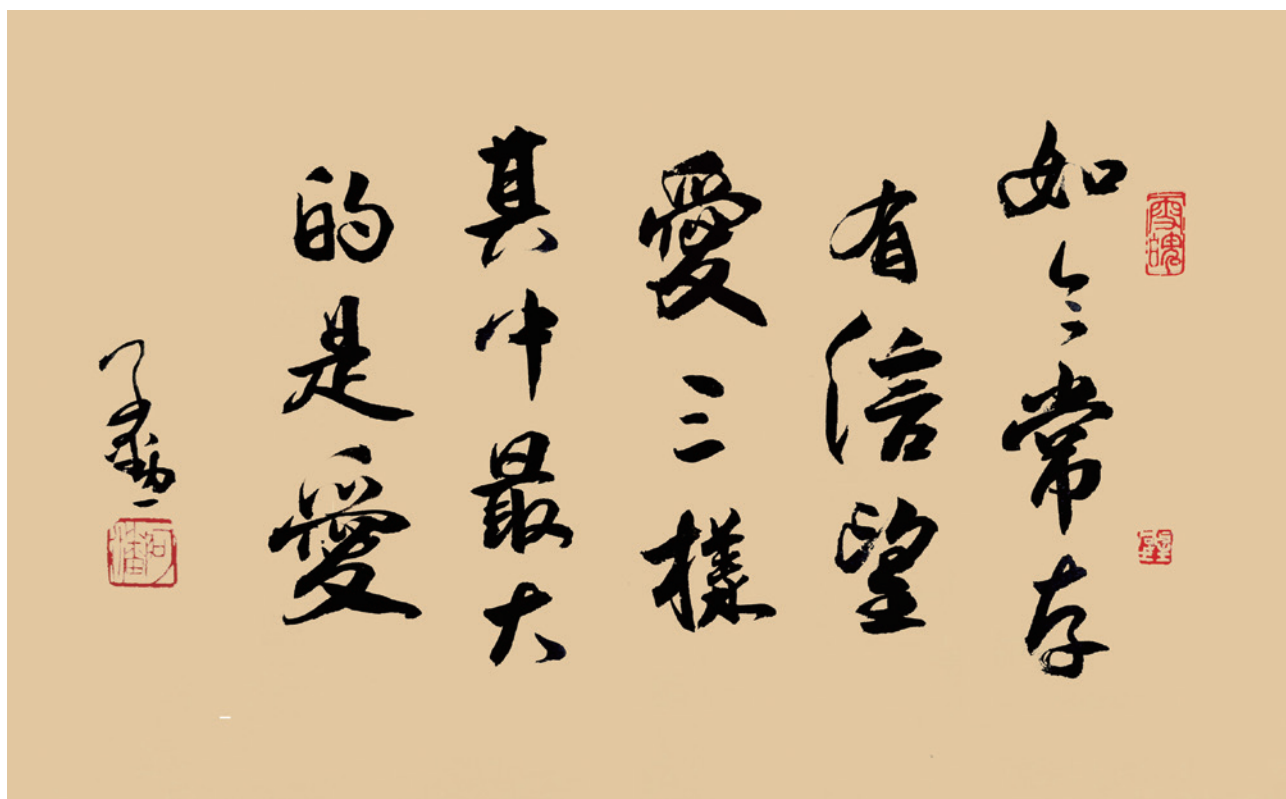 如今常存
有信望
愛三樣
其中最大
的是愛